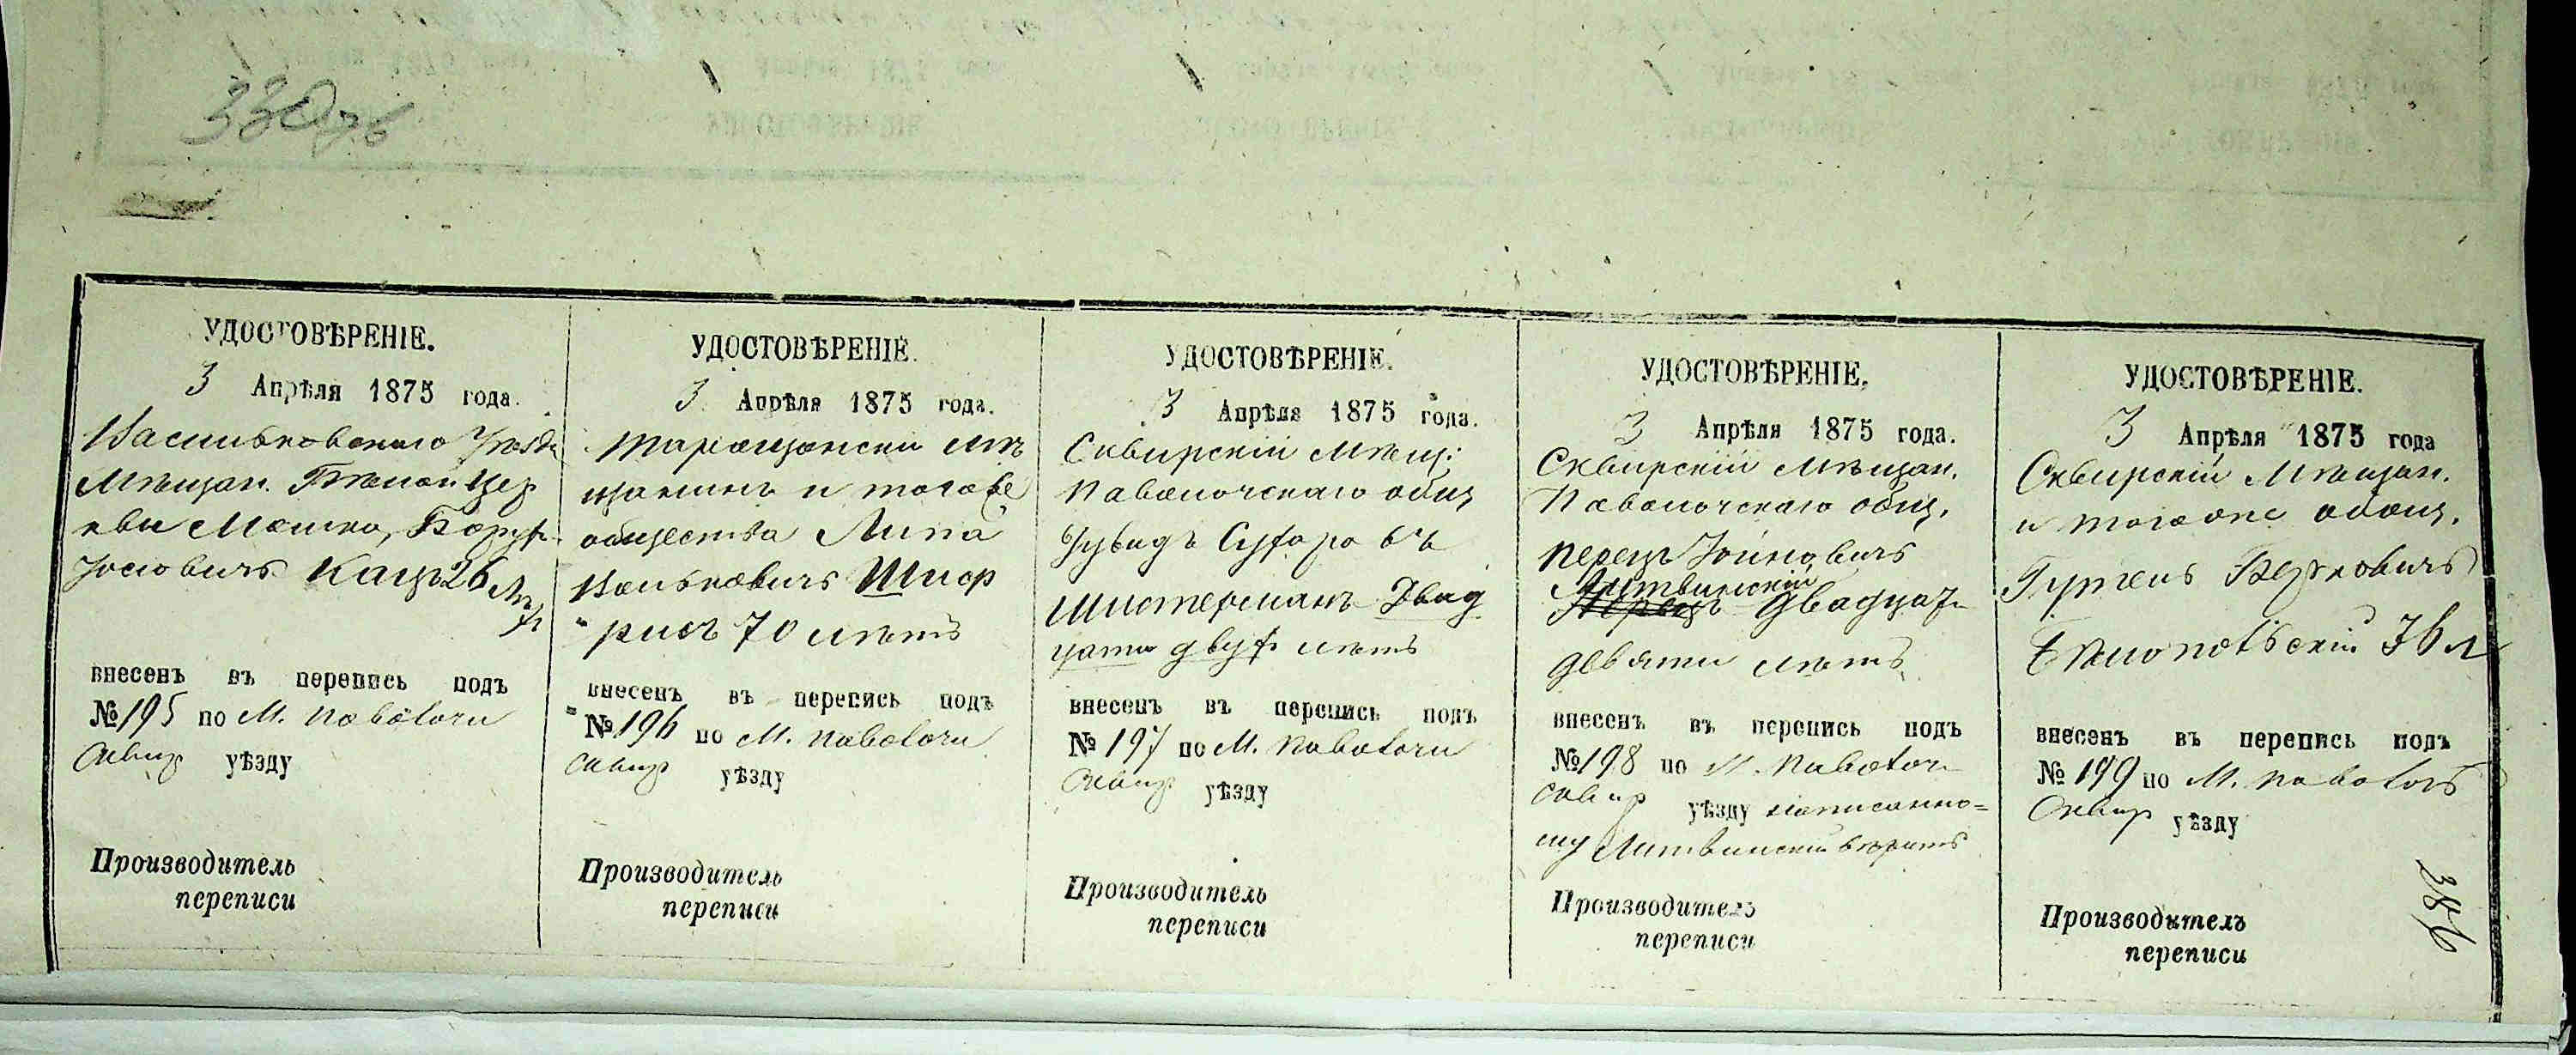 330
УДОСТОВѢРЕНІЕ.
3 Апрѣля 1875 года.
Васильковскаго Уѣзда
Мѣщан. Бѣлой Цер
кви Мошко, Борух
Іосіовичъ Кацъ 26 лѣтъ
внесенъ въ перепись подъ
№ 195 по М. Паволочи
Сквир уѣзду
Производитель
переписи
УДОСТОВѢРЕНІЕ.
3 Апрѣля 1875 года.
Таращанскій мѣ
щанинъ и того же
общества Липа
Волковичъ Шпор
рисъ 70 лѣтъ
внесенъ въ перепись подъ
№ 196 по М. Паволочи
Сквир уѣзду
Производитель
переписи
УДОСТОВѢРЕНІЕ.
3 Апрѣля 1875 года.
Сквирскій мѣщ.
Паволочскаго общ
Шистерманъ Двад
цати двух лѣтъ
внесенъ въ перепись подъ
№ 197 по М. Паволочи
Сквир уѣзду
Производитель
переписи
УДОСТОВѢРЕНІЕ.
3 Апрѣля 1875 года.
Сквирскій мѣщан.
Паволочскаго общ.
Перецъ Іойновичъ
Литвинскій
двадцати
девяти лѣтъ
внесенъ въ перепись подъ
№ 198 по М. Паволоч
Сквир уѣзду написанно=
му Литвинскій вѣрить
Производитель
переписи
УДОСТОВѢРЕНІЕ.
3 Апрѣля 1875 года
Сквирскій Мѣщан.
и тогоже общ.
Берковичъ
Бѣлопольскій 36 л
внесенъ въ перепись подъ
№ 199 по М. Паволочѣ
Сквир уѣзду
Производитель
переписи